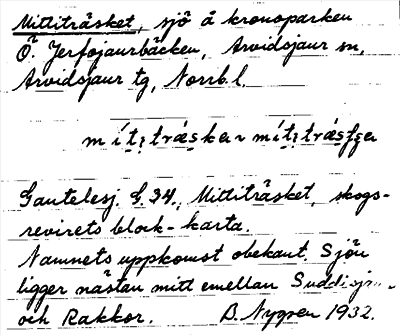 Mittiträsket, sjö å kronoparken
Ö. Jerfojaurbäcken, Arvidsjaur sn,
Arvidsjaur tg, Norrb. l.
mítiträskər mítiträsʃəa
Gautelesj. G. 34., Mittiträsket, skogs-
revirets block-karta.
Namnets uppkomst obekant. Sjön
ligger nästan mitt emellan Suddisj
och Rakkor. B. Nygren 1932.